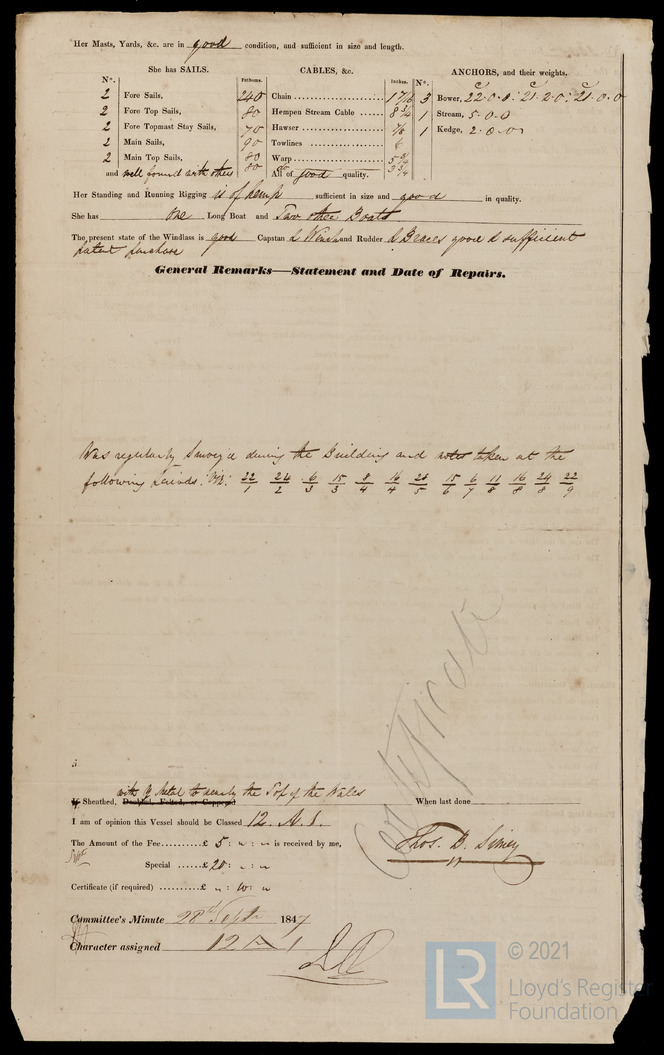 Her Masts, Yards, &c. are in good condition, and sufficient in size and length.
She has SAILS. CABLES, &c. ANCHORS, and their weights.
No. Fathoms. Inches. No.
2 Fore Sails, 240 Chain 1 7/16 3 Bower, 22.0.0: 21.2.0: 21.0.0
2 Fore Top Sails, 80 Hempen Stream Cable 8 3/4 1 Stream, 5.0.0
2 Fore Topmast Stay Sails, 70 Hawser 1 Kedge, 2.0.0
2 Main Sails, 90 Towlines
2 Main Top Sails, 80 Warp 5 3/4
and well found with others 80 All of good quality. 3 3/4
Her Standing and Running Rigging is of hemp sufficient in size and good in quality.
She has one Long Boat and Two other Boats
The present state of the Windlass is good Capstan & Winch and Rudder & Braces good & sufficient
patent purchase
General Remarks—Statement and Date of Repairs.
Was regularly Surveyed during the Building and notes taken at the
following periods. Viz: 22/1 24/2 6/3 15/3 8/4 16/4 28/5 15/6 6/7 11/8 16/8 24/8 22/9
with Y Metal to nearly the Top of the Wales
If Sheathed, Doubled, Felted, or Coppered When last done
I am of opinion this Vessel should be Classed 12. A. 1.
The Amount of the Fee £ 5: is received by me,
Special £ 20: Thos. B. Simey
Certificate (if required) £ : 10:
Certificate
Committee's Minute 28th Septr 1847
Character assigned 12 A 1
LR
© 2021
Lloyd's Register
Foundation